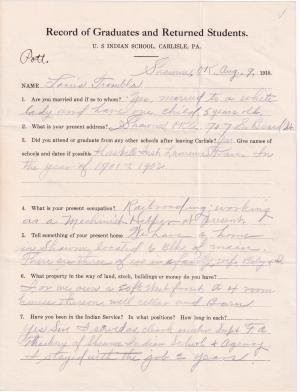 Record of Graduates and Returned Students.
U. S INDIAN SCHOOL, CARLISLE, PA.
Pott.
Shawnee, Ok, Aug. 9, 1910.
NAME Louis Tromble
1. Are you married and if so to whom? Yes, married to a white
lady and have one child, 5 years old
2. What is your present address? Shawnee Okla, 707 S.
3. Did you attend or graduate from any other schools after leaving Carlisle? Yes Give names of
schools and dates if possible Lawrence for
the year of 1901 to 1902
4. What is your present occupation? Railroading working
as a Mechinish Helper at
5. Tell something of your present home. We have a home
in Shawnee, located 6 blks of main.
There are three of us in a family, wife Baby & I.
6. What property in the way of land, stock, buildings or money do you have?
a 50 ft front a 4 room
house thereon well and Barn
7. Have you been in the Indian Service? In what positions? How long in each?
Yes Sir I served as clerk under Supt. F. A.
Thackery of Shawnee Indian School & Agency
I stayed with the job 2 years!